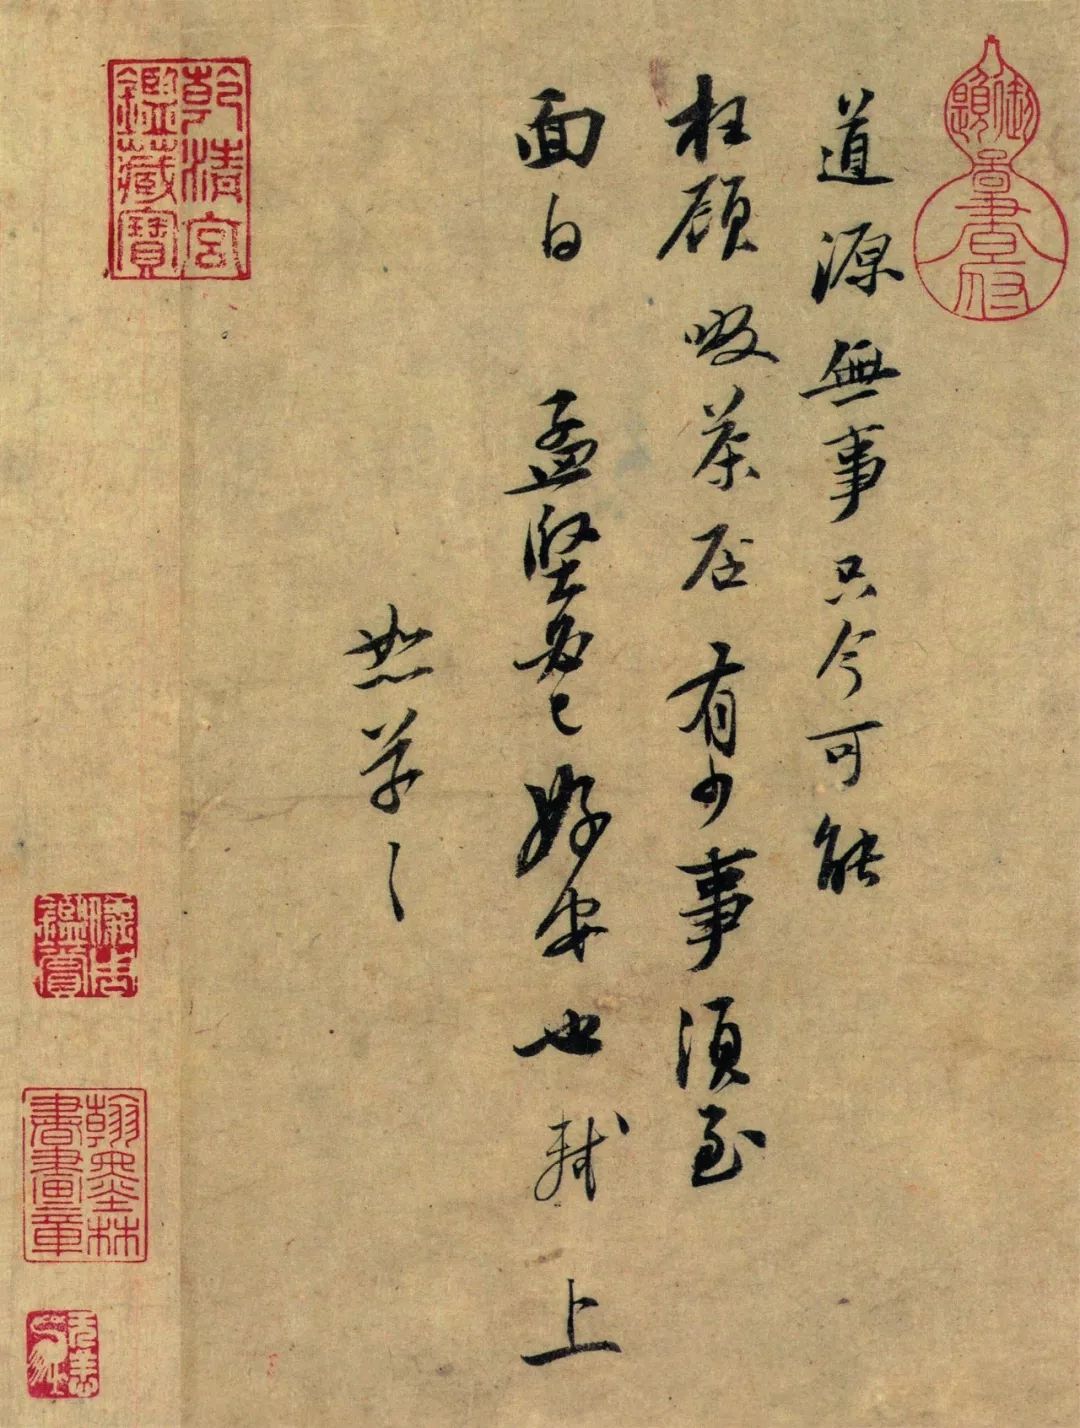 御題
啚書府
道源無事只今可能
枉顧啜茶否有少事須至
面白孟堅必已好安也軾上
恕草草
乾清宮鑑藏寶
儀周鑑賞
翰墨林書畫章